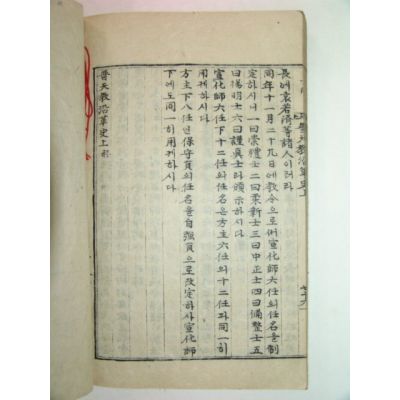 普天敎沿革史上
長에袁若濟等諸人이러라
同年十一月二十九日에敎令으로써宣化師六任의任名을制
定하시니一曰崇禮士二曰柔新士三曰中正士四曰備整士五
曰揚明士六曰謹眞士라頒示하시다
宣化師六任下十二任의任名은方主六任의十二任과同一히
用케하시다
方主下八任인保守員의任名을自强員으로改定하사宣化師
下에도同一히用케하시다
普天敎沿革史上終